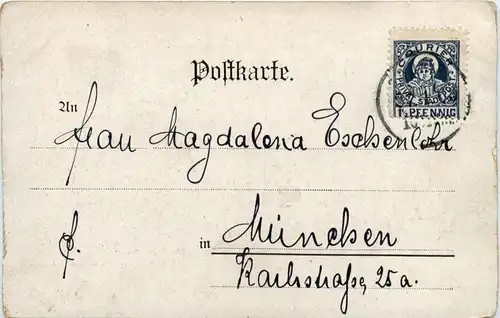 COURIER
1½ PFENNIG
Postkarte.
An
Frau Magdalena Eschenlohr
F.
in München
Karlstraße, 25 a.